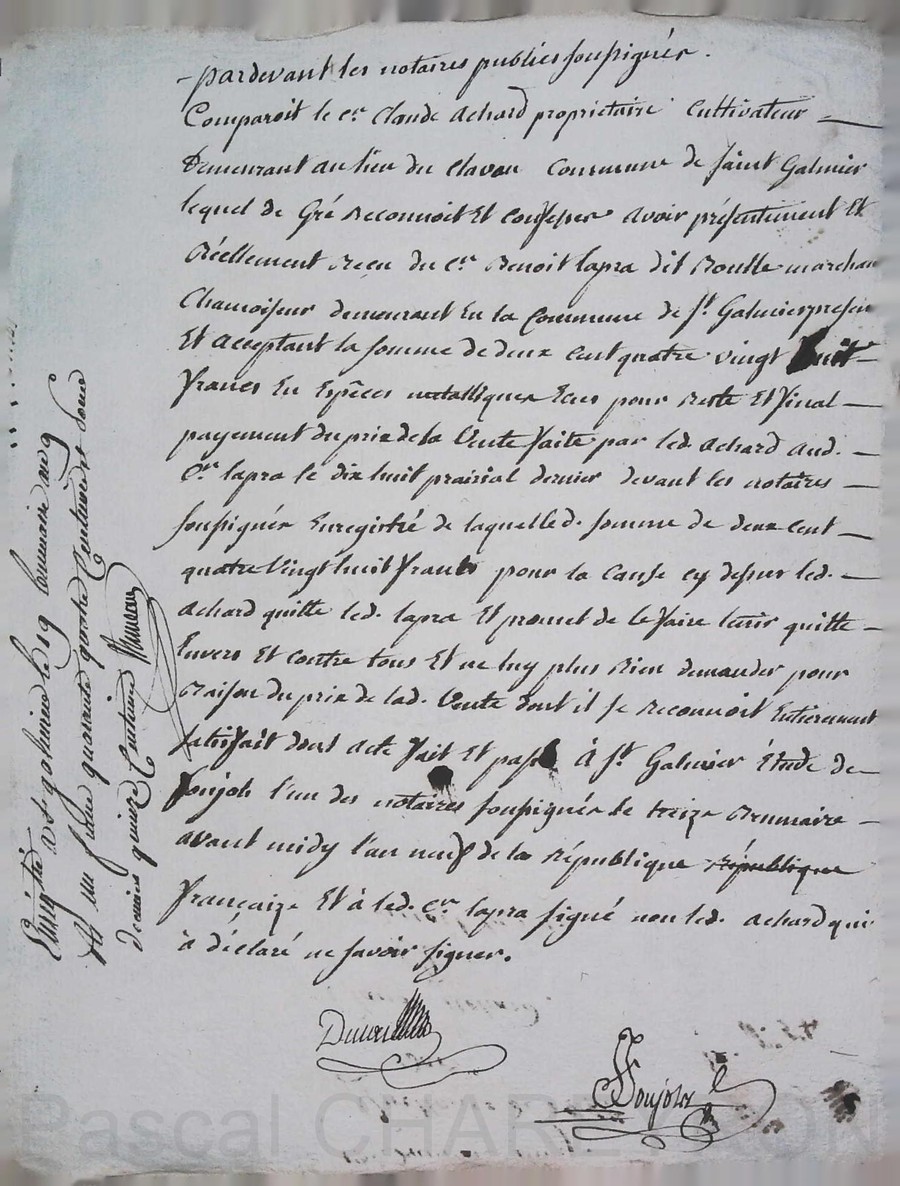 pardevant les notaires publics soussignés.
Comparoit le cn. Claude Achard propriétaire Cultivateur
Demeurant au lieu du Clavau Commune de Saint Galmier
lequel de Gré reconnoit Et confesse avoir présentement Et
Réellement Recu du cn. Benoit lapra dit Roulle marchan
Chamoiseur demeurant En la Commune de St. Galmier presen
Et acceptant la somme de deux cent quatre vingt huit
francs En Espèces metalliques Ecus pour Reste Et final
payement du prix de la Vente faite par led. Achard aud.
Cn. lapra le dix huit prairial dernier devant les notaires
soussignés Enregistré de laquelle d. somme de deux cent
quatre Vingt huit francs pour la Cause cy dessus led.
Achard quitte led. lapra Et promet de le faire tenir quitte
Envers Et contre tous Et ne luy plus Rien demander pour
Raison du prix de lad. Vente dont il se reconnoit Entierement
satisfait dont acte fait Et passé à St. Galmier Étude de
Soujols l'un des notaires soussignés le treize Brumaire
avant midy l'an neuf de la République République
françaize Et à led. cn. lapra signé non led. Achard qui
à déclaré ne savoir signer.
Soujols
Enregistré a St galmier le 19 brumaire an 9
quarante quatre Centimes
decimes quinze Centimes
Pascal